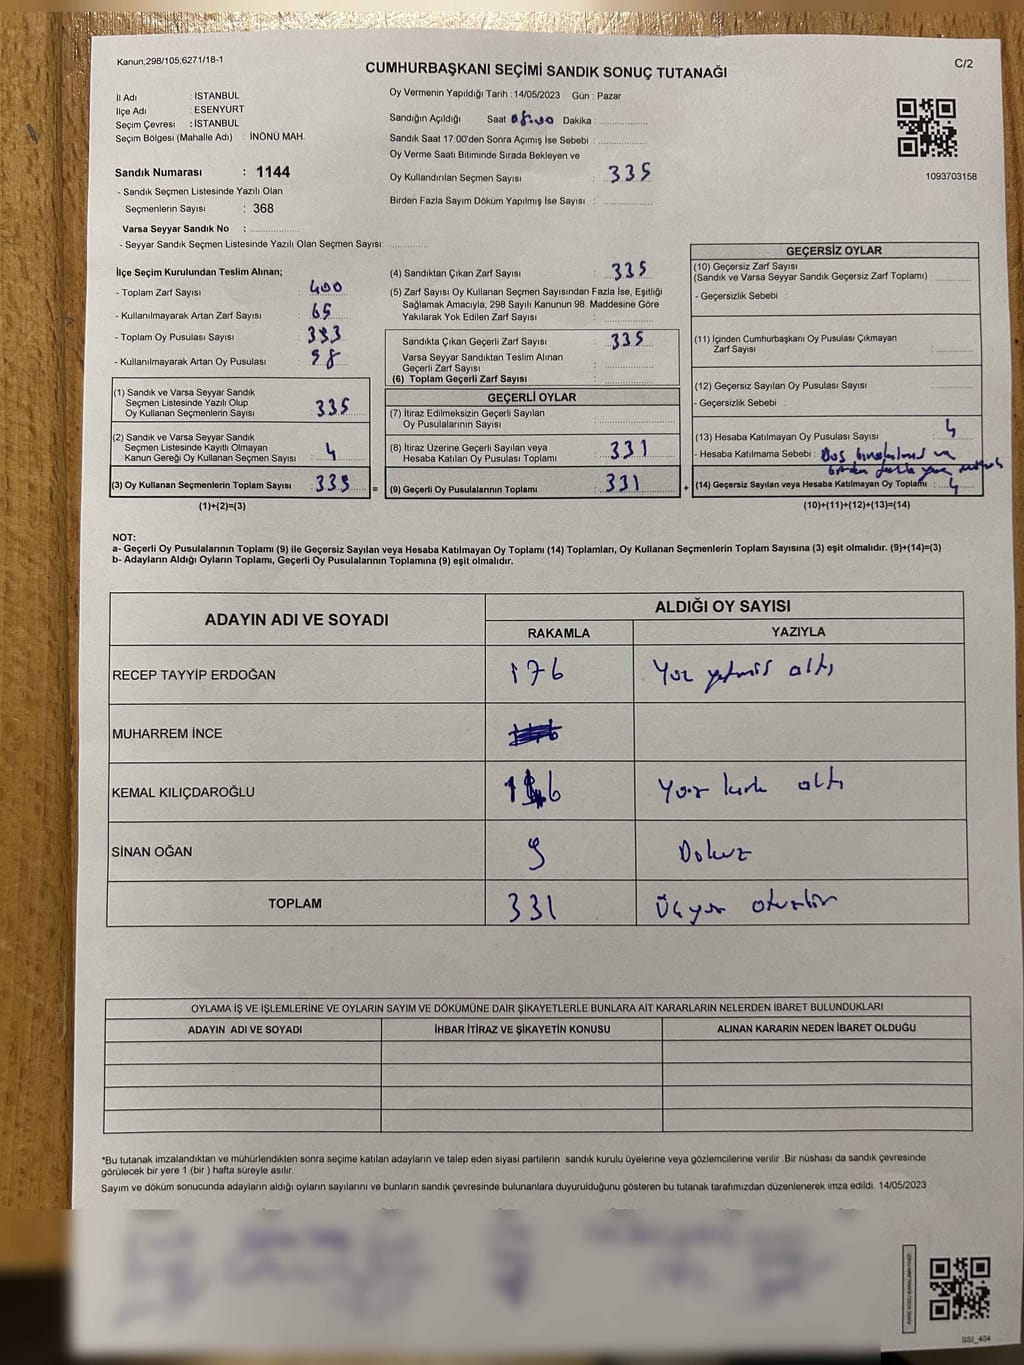 Kanun;298/105;6271/18-1
C/2
CUMHURBAŞKANI SEÇİMİ SANDIK SONUÇ TUTANAĞI
İl Adı : İSTANBUL
İlçe Adı : ESENYURT
Seçim Çevresi : İSTANBUL
Seçim Bölgesi (Mahalle Adı) : İNÖNÜ MAH.
Oy Vermenin Yapıldığı Tarih : 14/05/2023 Gün : Pazar
Sandığın Açıldığı Saat 08:00 Dakika :
Sandık Saat 17:00'den Sonra Açımış İse Sebebi :
Oy Verme Saati Bitiminde Sırada Bekleyen ve
Oy Kullandırılan Seçmen Sayısı : 335
Birden Fazla Sayım Döküm Yapılmış İse Sayısı :
1093703158
Sandık Numarası : 1144
- Sandık Seçmen Listesinde Yazılı Olan
Seçmenlerin Sayısı : 368
Varsa Seyyar Sandık No :
- Seyyar Sandık Seçmen Listesinde Yazılı Olan Seçmen Sayısı:
İlçe Seçim Kurulundan Teslim Alınan;
- Toplam Zarf Sayısı : 400
- Kullanılmayarak Artan Zarf Sayısı : 65
- Toplum Oy Pusulası Sayısı : 393
- Kullanılmayarak Artan Oy Pusulası : 58
(1) Sandık ve Varsa Seyyar Sandık
Seçmen Listesinde Yazılı Olup
Oy Kullanan Seçmenlerin Sayısı : 335
(2) Sandık ve Varsa Seyyar Sandık
Seçmen Listesinde Kayıtlı Olmayan
Kanun Gereği Oy Kullanan Seçmen Sayısı : 4
(3) Oy Kullanan Seçmenlerin Toplam Sayısı : 335 =
(1)+(2)=(3)
(4) Sandıktan Çıkan Zarf Sayısı : 335
(5) Zarf Sayısı Oy Kullanan Seçmen Sayısından Fazla İse, Eşitliği
Sağlamak Amacıyla; 298 Sayılı Kanunun 98. Maddesine Göre
Yakılarak Yok Edilen Zarf Sayısı :
Sandıkta Çıkan Geçerli Zarf Sayısı : 335
Varsa Seyyar Sandıktan Teslim Alınan
Geçerli Zarf Sayısı :
(6) Toplam Geçerli Zarf Sayısı :
GEÇERLİ OYLAR
(7) İtiraz Edilmeksizin Geçerli Sayılan
Oy Pusulalarının Sayısı :
(8) İtiraz Üzerine Geçerli Sayılan veya
Hesaba Katılan Oy Pusulası Toplamı : 331
(9) Geçerli Oy Pusulalarının Toplamı : 331 +
GEÇERSİZ OYLAR
(10) Geçersiz Zarf Sayısı
(Sandık ve Varsa Seyyar Sandık Geçersiz Zarf Toplamı) :
- Geçersizlik Sebebi :
(11) İçinden Cumhurbaşkanı Oy Pusulası Çıkmayan
Zarf Sayısı :
(12) Geçersiz Sayılan Oy Pusulası Sayısı :
- Geçersizlik Sebebi :
(13) Hesaba Katılmayan Oy Pusulası Sayısı : 4
- Hesaba Katılmama Sebebi : Boş ve
birden fazla
(14) Geçersiz Sayılan veya Hesaba Katılmayan Oy Toplamı : 4
(10)+(11)+(12)+(13)=(14)
NOT:
a- Geçerli Oy Pusulalarının Toplamı (9) ile Geçersiz Sayılan veya Hesaba Katılmayan Oy Toplamı (14) Toplamları, Oy Kullanan Seçmenlerin Toplam Sayısına (3) eşit olmalıdır. (9)+(14)=(3)
b- Adayların Aldığı Oyların Toplamı, Geçerli Oy Pusulalarının Toplamına (9) eşit olmalıdır.
ADAYIN ADI VE SOYADI
ALDIĞI OY SAYISI
RAKAMLA YAZIYLA
RECEP TAYYİP ERDOĞAN 176 Yüz yetmiş altı
MUHARREM İNCE
KEMAL KILIÇDAROĞLU 146 Yüz kırk altı
SİNAN OĞAN 9 Dokuz
TOPLAM 331 Üçyüz otuzbir
OYLAMA İŞ VE İŞLEMLERİNE VE OYLARIN SAYIM VE DÖKÜMÜNE DAİR ŞİKAYETLERLE BUNLARA AİT KARARLARIN NELERDEN İBARET BULUNDUKLARI
ADAYIN ADI VE SOYADI İHBAR İTİRAZ VE ŞİKAYETİN KONUSU ALINAN KARARIN NEDEN İBARET OLDUĞU
*Bu tutanak imzalandıktan ve mühürlendikten sonra seçime katılan adayların ve talep eden siyasi partilerin sandık kurulu üyelerine veya gözlemcilerine verilir .Bir nüshası da sandık çevresinde
görülecek bir yere 1 (bir ) hafta süreyle asılır.
Sayım ve döküm sonucunda adayların aldığı oyların sayılarını ve bunların sandık çevresinde bulunanlara duyurulduğunu gösteren bu tutanak tarafımızdan düzenlenerek imza edildi. 14/05/2023
SSI_404